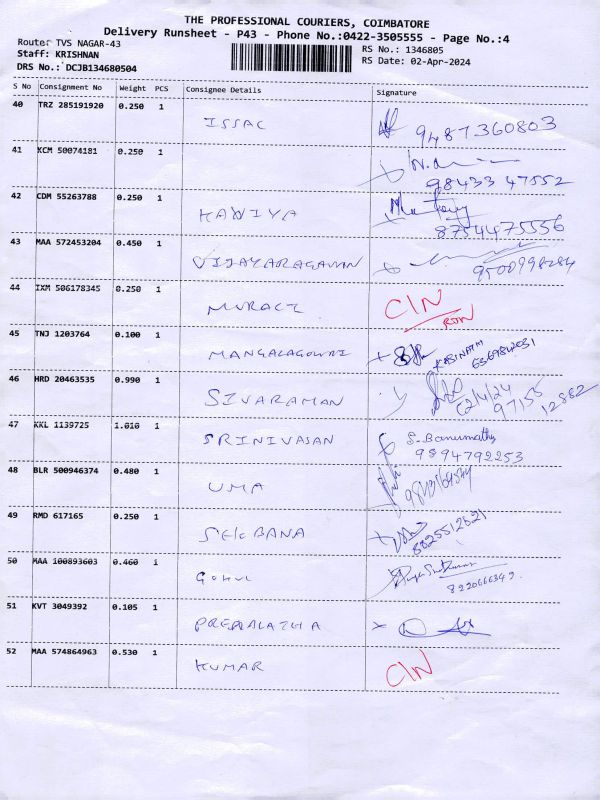 THE PROFESSIONAL COURIERS, COIMBATORE
Delivery Runsheet - P43 - Phone No.:0422-3505555 - Page No.:4
Router TVS NAGAR-43
RS No.: 1346805
Staff: KRISHNAN
RS Date: 02-Apr-2024
DRS No.: DCJB134680504
S No Consignment No Weight PCS Consignee Details Signature
40 TRZ 285191920 0.250 1 ISSAC 9487360803
41 KCM 50074181 0.250 1 98433 47552
42 CDM 55263788 0.250 1 KAWIYA 8754475556
43 MAA 572453204 0.450 1 VIJAYARAGAVAN 9500998284
44 IXM 506178345 0.250 1 C/N
RTN
45 TNJ 1203764 0.100 1 MANGALAGOWRI KASINATH
6369842031
46 HRD 20463535 0.990 1 SIVARAMAN 02/4/24
97155 12862
47 KKL 1139725 1.010 1 SRINIVASAN S. Banumathy
9894792253
48 BLR 500946374 0.480 1 UMA
49 RMD 617165 0.250 1 8825512621
50 MAA 100893603 0.460 1 GOKUL 8220666349
51 KVT 3049392 0.105 1
52 MAA 574864963 0.530 1 KUMAR C/N